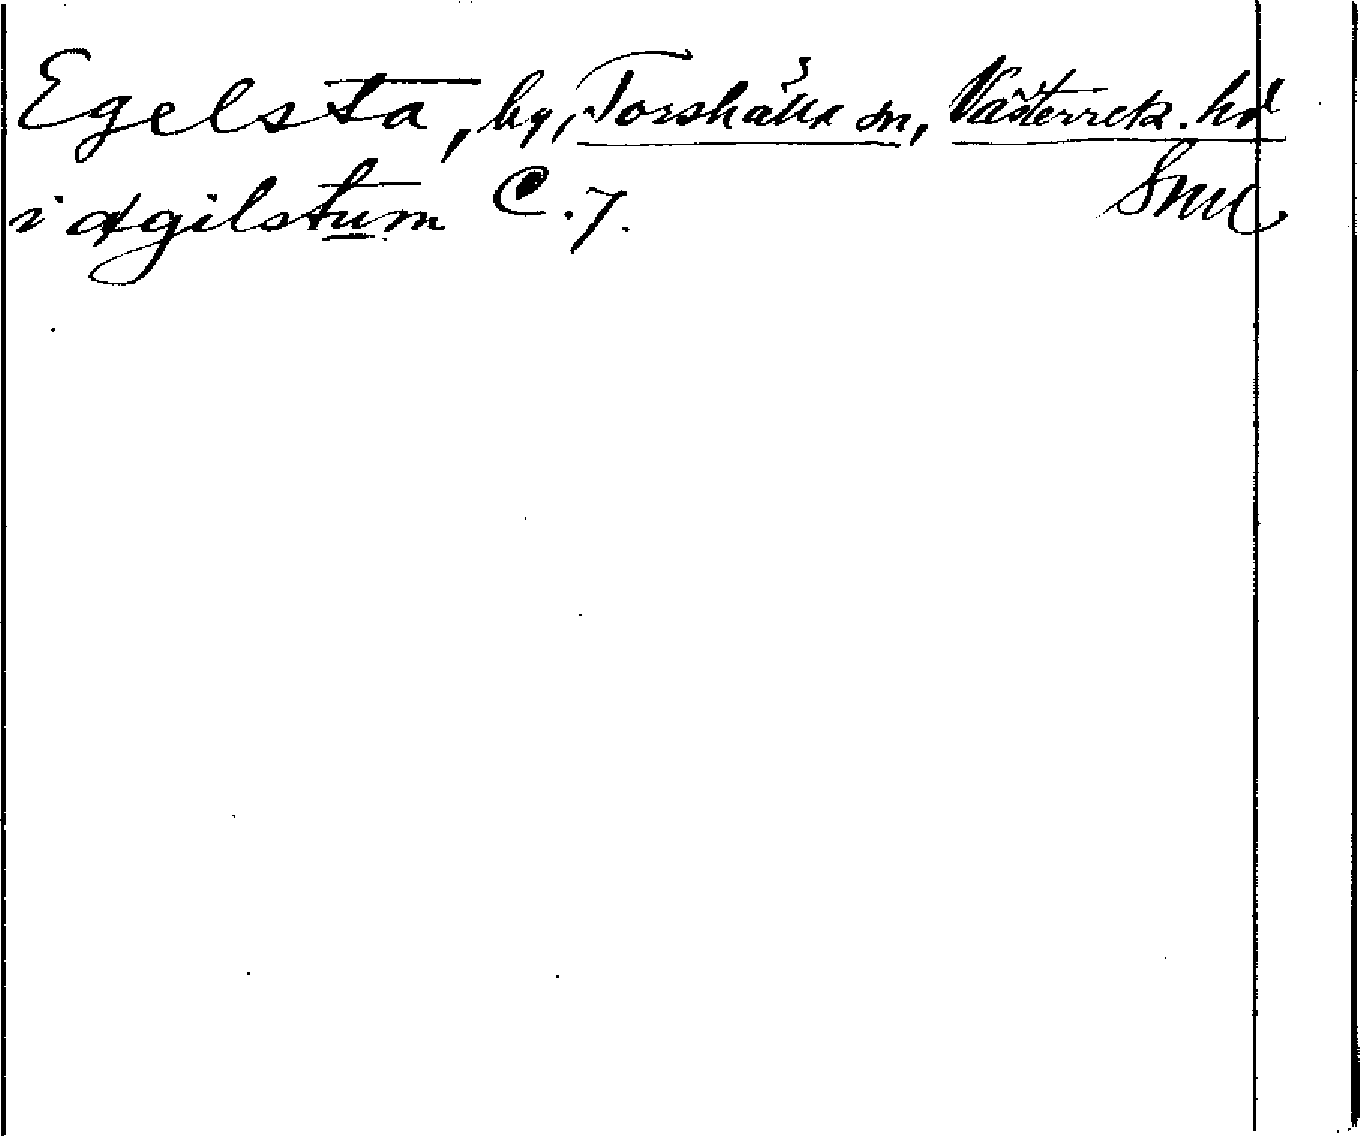 Egelsta, by, Torshälla sn, Västerrek. hd
i ægilstum C. 7. Sml